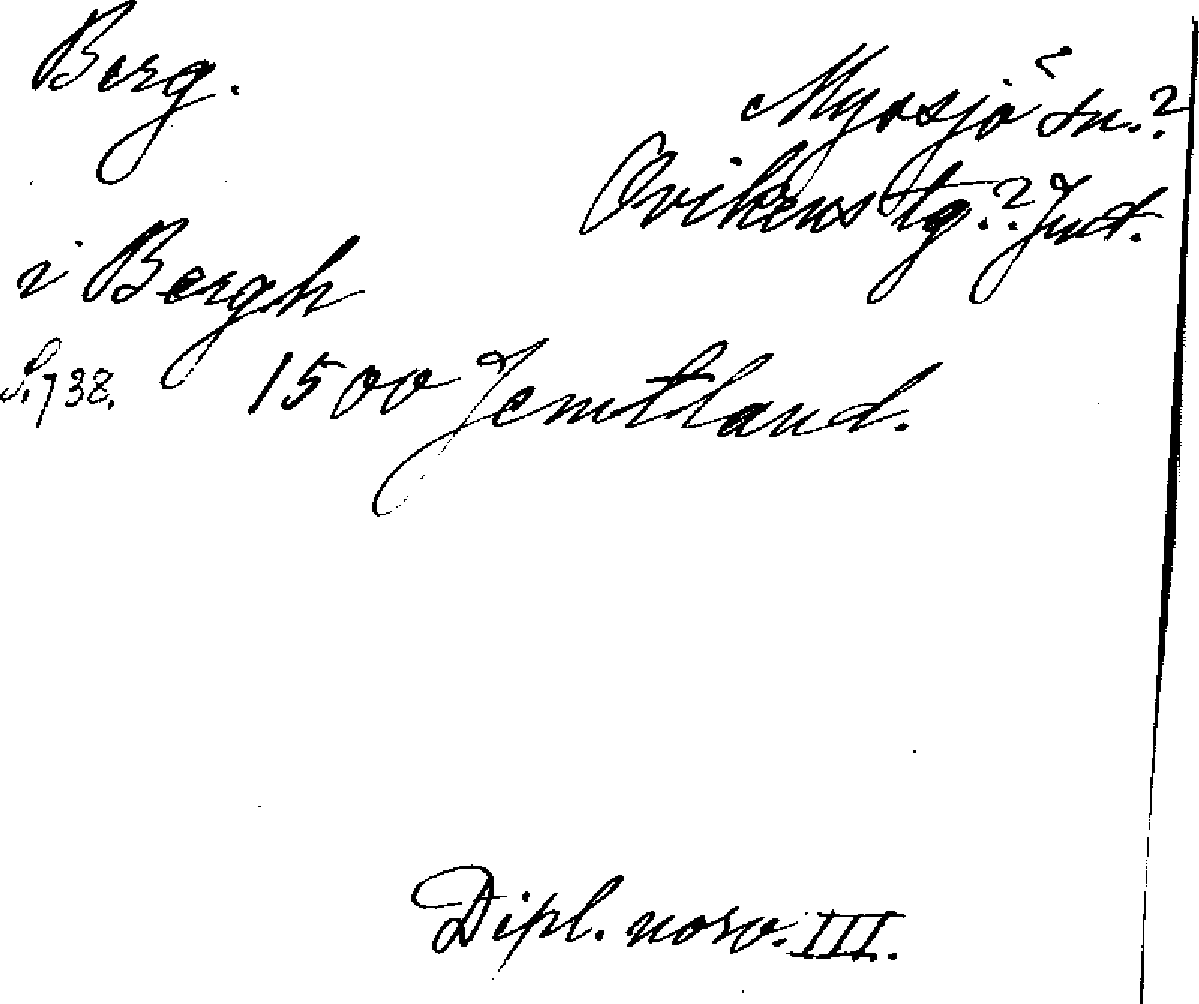 Berg.
Myssjö sn.?
Ovikens tg.? Jmt.
i Bergh
S. 738. 1500 Jemtland.
Dipl. norv. III.